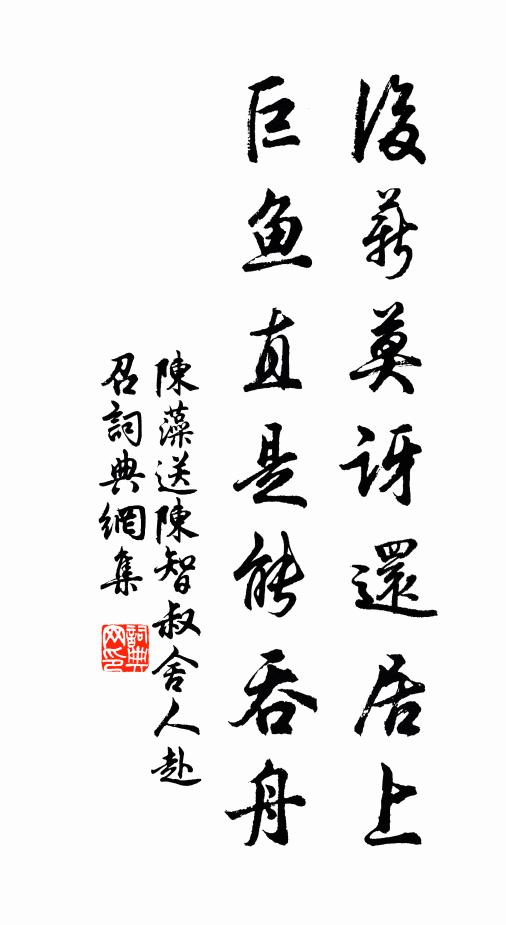 後薪莫訝還居上
巨魚直是能吞舟
陳藻送陳智叔舍人赴
召詞典網集
詞典网印